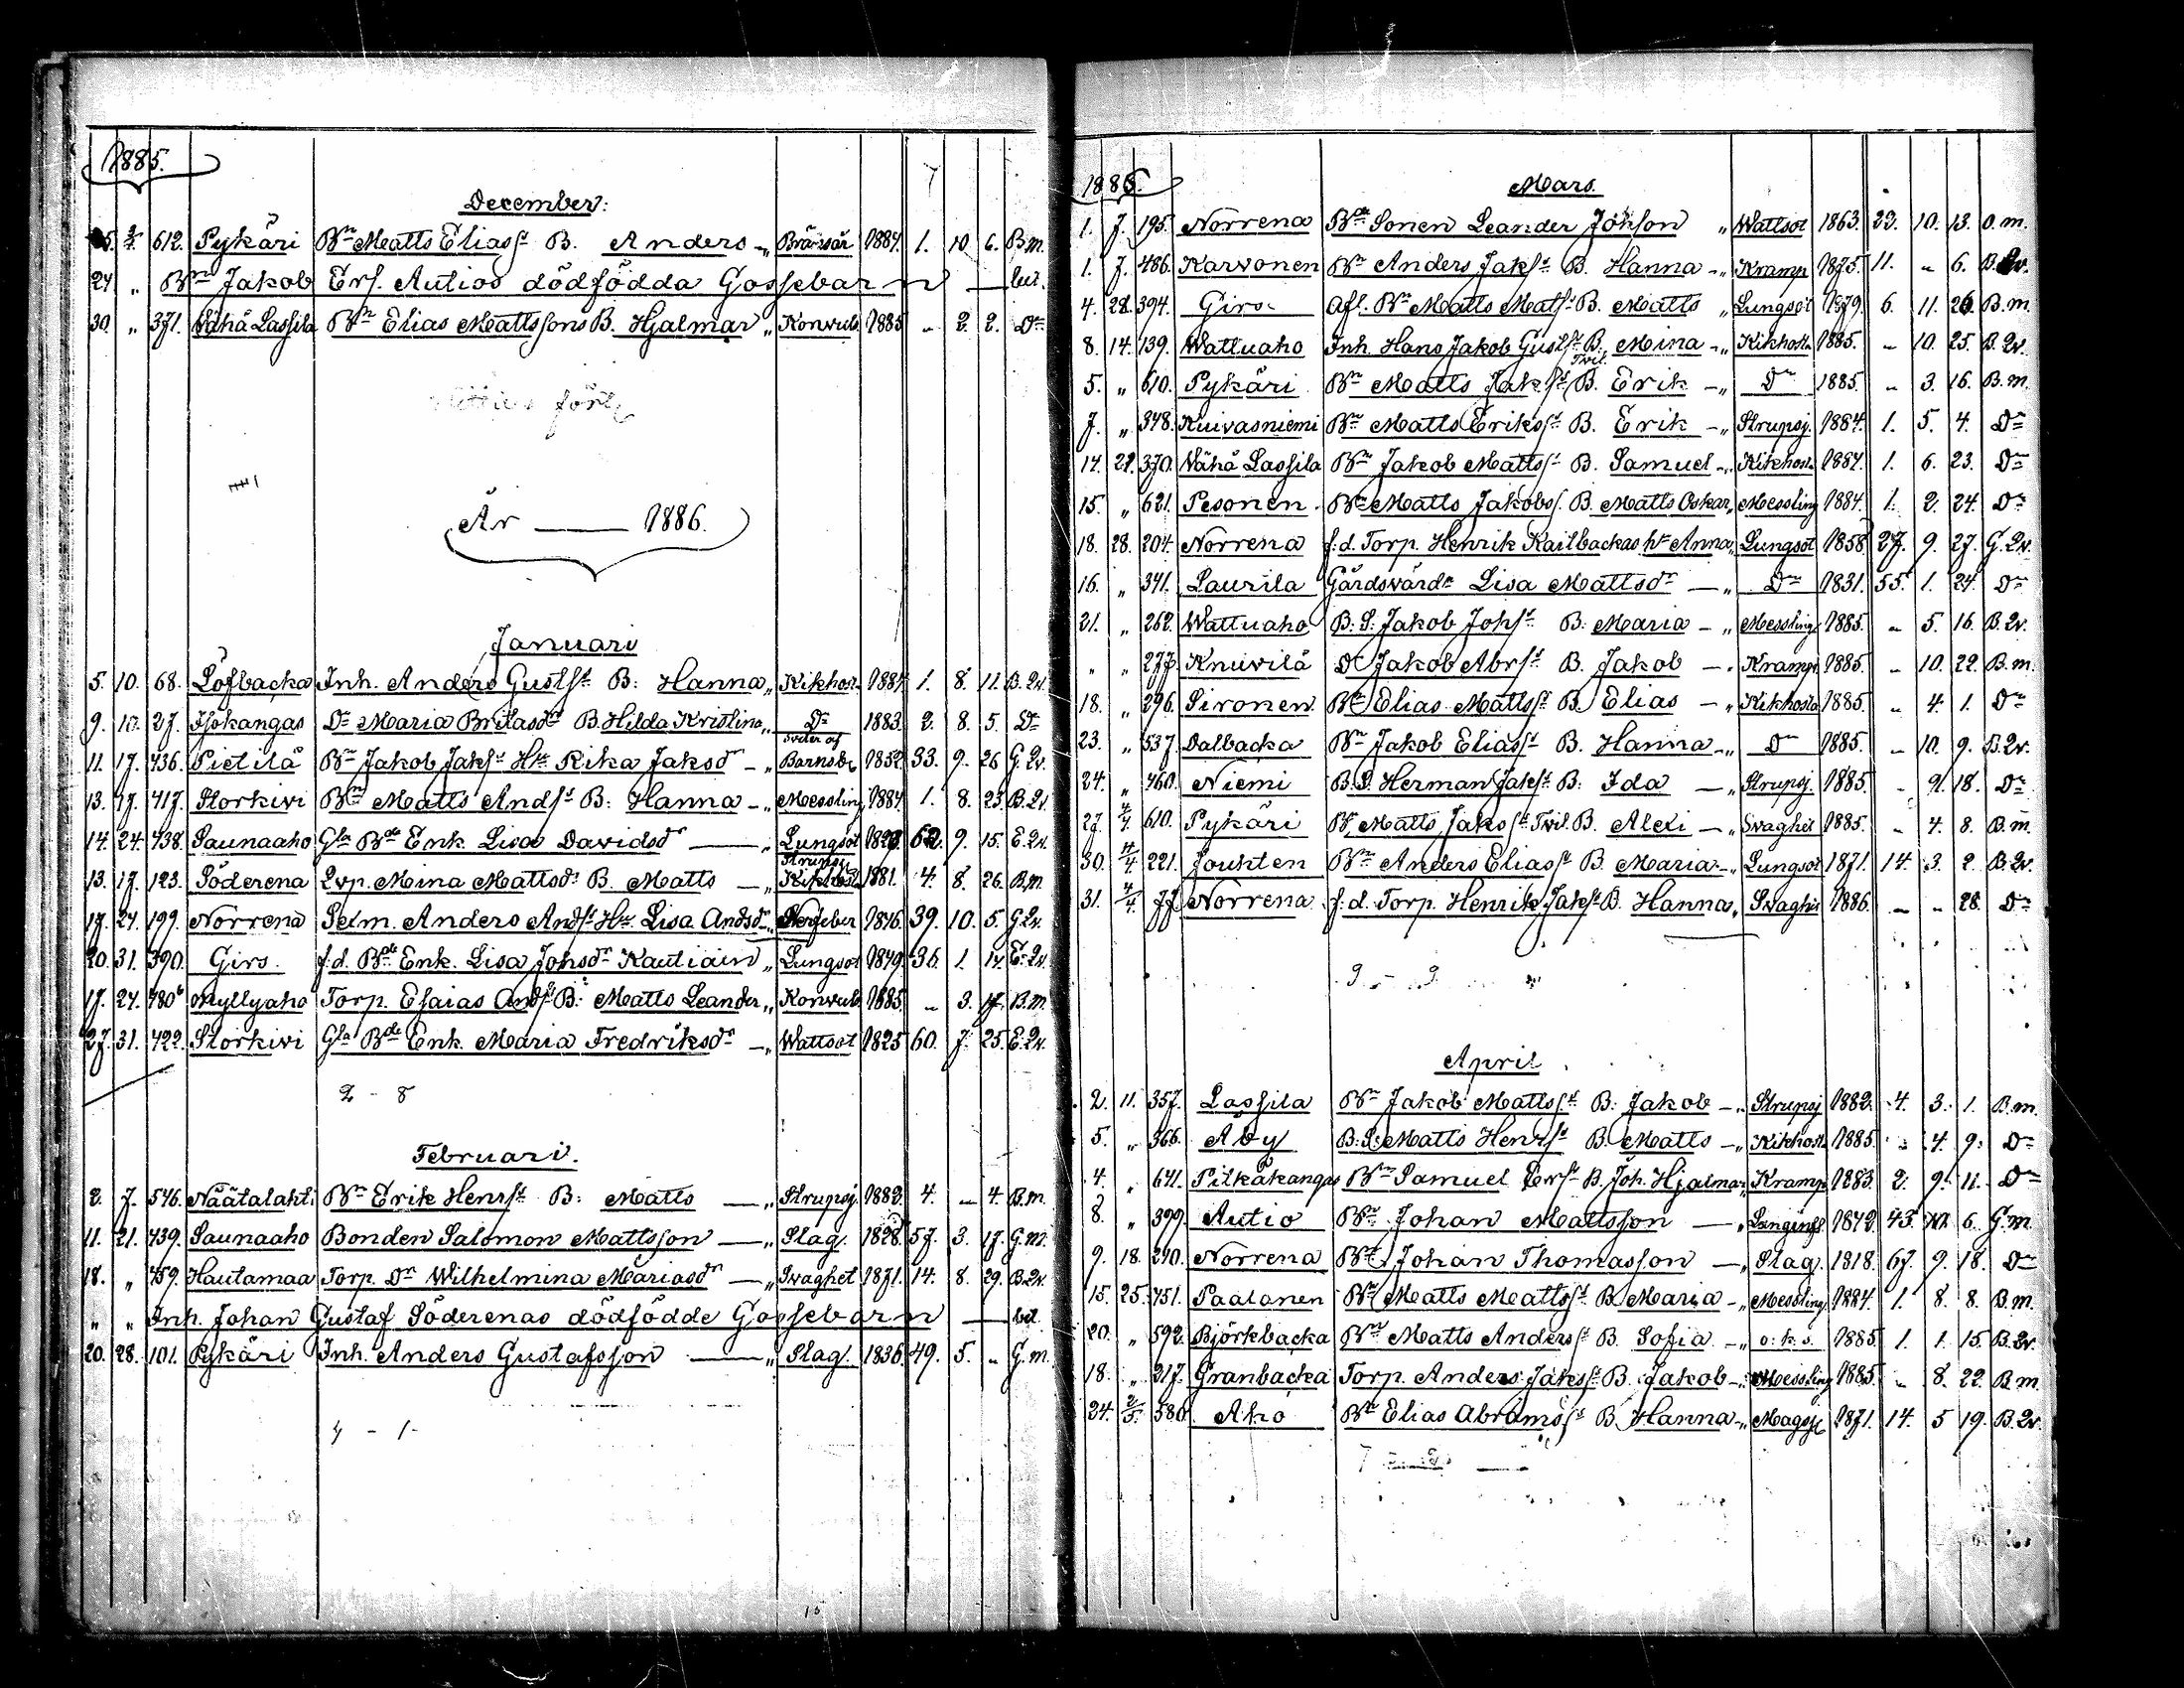 1885.
December:
25. 3/1. 612. Pykäri Bn Matts Eliass:s B. Anders „ Brännsår 1884. 1. 10. 6. B.m.
24 „ Bn Jakob Ers. Autios dödfödda Gossebarn
30. „ 371. Wähä Lassila Bn Elias Mattssons B. Hjalmar „ Konvuls. 1885 „ 2. 2. Do
År — 1886.
Januari
5. 10. 68. Löfbacka Inh. Anders Gusts:s B: Hanna „ Kikhost. 1884. 1. 8. 11. B.Qv.
9. 10. 27. Isokangas Do Maria Britasdr B. Hilda Kristina „ Do 1883. 2. 8. 5. Do
11. 17. 436. Pietilä Bn Jakob Jaks:s Hu Rika Jaksdr – „ Sviter af Barnsb. 1852. 33. 9. 26 G.Qv.
13. 17. 417. Storkivi Bn Matts Ands:s B: Hanna – „ Messling 1884. 1. 8. 23. B.Qv.
14. 24. 438. Saunaaho Gla Bde Enk. Lisa Davidsdr — „ Lungsot 1823. 62. 9. 15. E.Qv.
13. 17. 123. Söderena Qvp. Mina Mattsdr B. Matts — „ Strupsj 1881. 4. 8. 26. B.m.
17. 24. 199. Norrena Sexm. Anders Ands:s Hu Lisa Andsdr „ Nerfeber 1846. 39. 10. 5. G.Qv.
20. 31. 390. Girs. f.d. Bde Enk. Lisa Johsdr Kautiain „ Lungsot 1849. 36. 1. 14. E.Qv.
17. 24. 480b Myllyaho Torp. Esaias Ands:s B: Matts Leander „ Konvuls 1885. „ 3. 17. B.m.
27. 31. 422. Storkivi Gla Bde Enk. Maria Fredriksdr – „ Wattsot 1825 60. 7. 25. E.Qv.
2 - 8
Februari.
2. 7. 546. Näätalahti Bn Erik Henrs:s B: Matts — „ Strupsj. 1882 4. – 4. B.m.
11. 21. 439. Saunaaho Bonden Salomon Mattsson — „ Slag. 1828. 57. 3. 17. G.m.
18. „ 459. Hautamaa Torp. Dr Wilhelmina Mariasdr — „ Svaghet 1871. 14. 8. 29. B.Qv.
„ „ Inh. Johan Gustaf Söderenas dödfödde Gossebarn
20. 28. 101. Pykäri Inh. Anders Gustafsson — „ Slag. 1836. 49. 5. „ G.m.
4 - 1-
1886.
Mars.
1. 7. 195. Norrena Bde Sonen Leander Johsson „ Wattsot 1863. 23. 10. 13. O.m.
1. 7. 486. Karvonen Bn Anders Jaks:s B. Hanna – „ Kramp 1875. 11. „ 6. B.Qv.
4. 28. 394. Girs. Afl. Bn Matts Mats:s B. Matts „ Lungsot 1879. 6. 11. 26. B.m.
8. 14. 139. Wattuaho Inh. Hans Jakob Gusts:s B. Mina – „ Kikhosta 1885. „ 10. 25. B.Qv.
5. „ 610. Pykäri Bn Matts Jaks:s Tvil. B. Erik – „ Do 1885. „ 3. 16. B.m.
7. „ 348. Kuivasniemi Bn Matts Eriks:s B. Erik – „ Strupsj. 1884. 1. 5. 4. Do
14. 21. 370. Wähä Lassila Bn Jakob Matts:s B. Samuel – „ Kikhosta 1884. 1. 6. 23. Do
15. „ 621. Pesonen Bn Matts Jakobs. B. Matts Oskar „ Messling 1884. 1. 2. 24. Do
18. 28. 204. Norrena f.d. Torp. Henrik Kailbackas hu Anna „ Lungsot 1858 27. 9. 27. G.Qv.
16. „ 341. Laurila Gårdsvärd. Lisa Mattsdr — „ Do 1831. 55. 1. 24. Do
21. „ 262. Wattuaho B: S: Jakob Johs:s B: Maria – „ Messling 1885. „ 5. 16. B.Qv.
„ „ 277. Knuvilä Do Jakob Abrs:s B. Jakob – „ Kramp. 1885. „ 10. 22. B.m.
18. „ 296. Sironen Bn Elias Matts:s B. Elias – „ Kikhosta 1885. „ 4. 1. Do
23. „ 537. Dalbacka Bn Jakob Elias:s B. Hanna – „ Do 1885. – 10. 9. B.Qv.
24. „ 460. Niemi B.S. Herman Jaks:s B: Ida – „ Strupsj. 1885. „ 9. 18. Do
27. 4/4. 610. Pykäri Bn Matts Jaks:s Tvil. B. Alexi – „ Svaghet 1885. „ 4. 8. B.m.
30. 4/4. 221. Jouhten Bn Anders Elias:s B. Maria – „ Lungsot 1871. 14. 3. 2. B.Qv.
31. 4/4. 77. Norrena f.d. Torp. Henrik Jaks:s B. Hanna „ Svaghet 1886. „ „ 28. Do
9 - 9
April
2. 11. 357. Lassila Bn Jakob Matts:s B: Jakob – „ Strupsj 1882. 4. 3. 1. B.m.
5. „ 366. Aby B: S: Matts Henrs:s B. Matts – „ Kikhosta 1885. „ 4. 9. Do
4. „ 641. Pitkäkangas Bn Samuel Ers:s B. Joh. Hjalmar „ Kramp 1883. 2. 9. 11. Do
8. „ 399. Autio Bn Johan Mattsson — „ Lunginfl. 1842. 43. 6. G.m.
9. 18. 210. Norrena Bn Johan Thomasson — „ Slag. 1818. 67. 9. 18. Do
15. 25. 451. Paalanen Bn Matts Matts:s B. Maria – „ Messling. 1884. 1. 8. 8. B.m.
20. „ 592. Björkbacka Bn Matts Anders:s B. Sofia – „ o: k. s. 1885. 1. 1. 15. B.Qv.
18. „ 217. Granbacka Torp. Anders Jaks:s B. Jakob – „ Messling 1885. „ 8. 22. B.m.
24. 2/5. 580. Aho Bn Elias Abrams:s B. Hanna – „ Magsj. 1871. 14. 5 19. B.Qv.